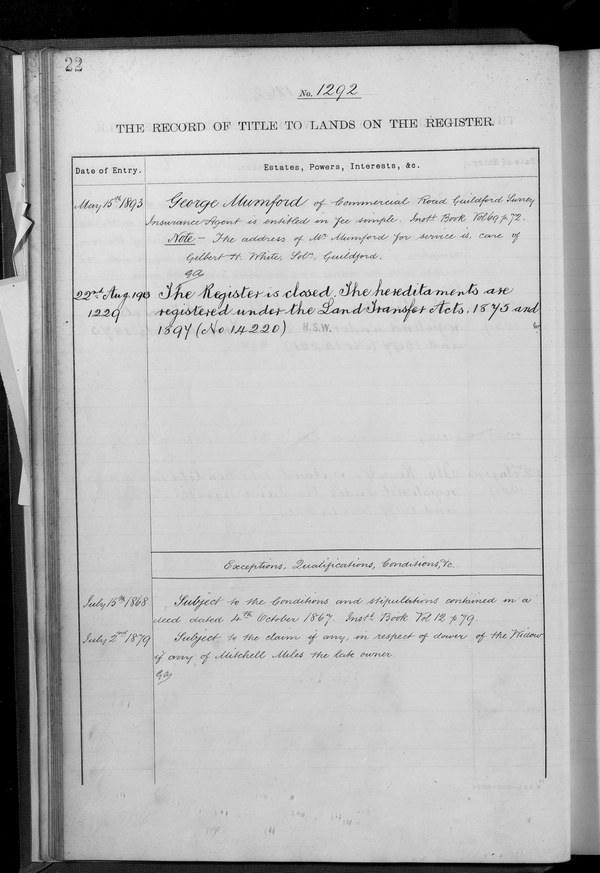 22
No. 1292
THE RECORD OF TITLE TO LANDS ON THE REGISTER.
Date of Entry.
Estates, Powers, Interests, &c.
May 15th 1893
George Mumford of Commercial Road Guildford Surrey
Insurance Agent is entitled in fee simple. Instt Book Vol 69 p 72.
Note — The address of Mr Mumford for service is, care of
Gilbert H. White, Solr, Guildford.
22nd Aug. 1913
1229
The Register is closed, The hereditaments are
registered under the Land Transfer Acts, 1875 and
1897 (No 14220)
H.S.W.
Exceptions, Qualifications, Conditions, &c.
July 15th 1868
Subject to the Conditions and stipulations contained in a
deed dated 4th October 1867. Instt Book Vol 12 p 79.
July 2nd 1879
Subject to the claim if any, in respect of dower of the Widow
if any of Mitchell Miles the late owner